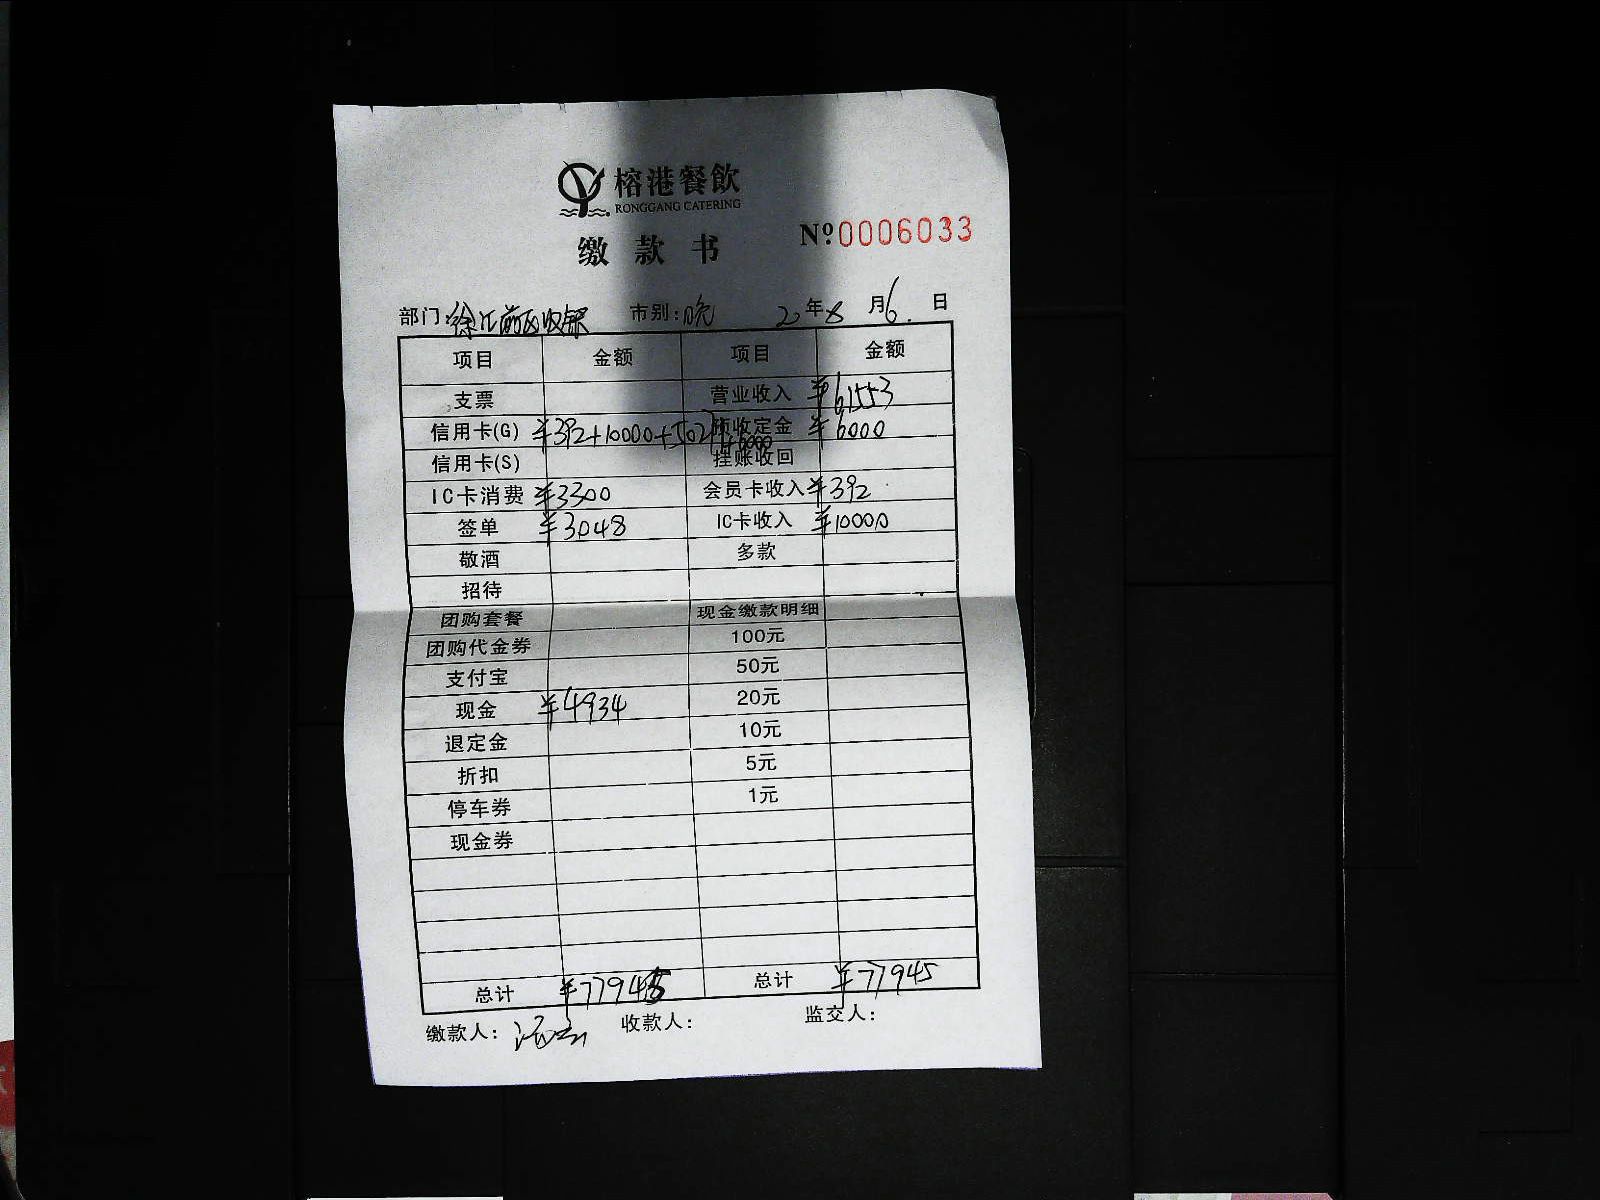 榕港餐飲
RONGGANG CATERING
缴款书
Nº:0006033
部门: 徐汇前区收银 市别: 晚 20年8月6日
项目 金额 项目 金额
支票 营业收入 ¥61553
信用卡(G) ¥392+10000+50271+6000 预收定金 ¥6000
信用卡(S) 挂账收回
IC卡消费 ¥3300 会员卡收入 ¥392
签单 ¥3048 IC卡收入 ¥10000
敬酒 多款
招待
团购套餐 现金缴款明细
团购代金券 100元
支付宝 50元
现金 ¥4934 20元
退定金 10元
折扣 5元
停车券 1元
现金券
总计 ¥77945 总计 ¥77945
缴款人: 收款人: 监交人: